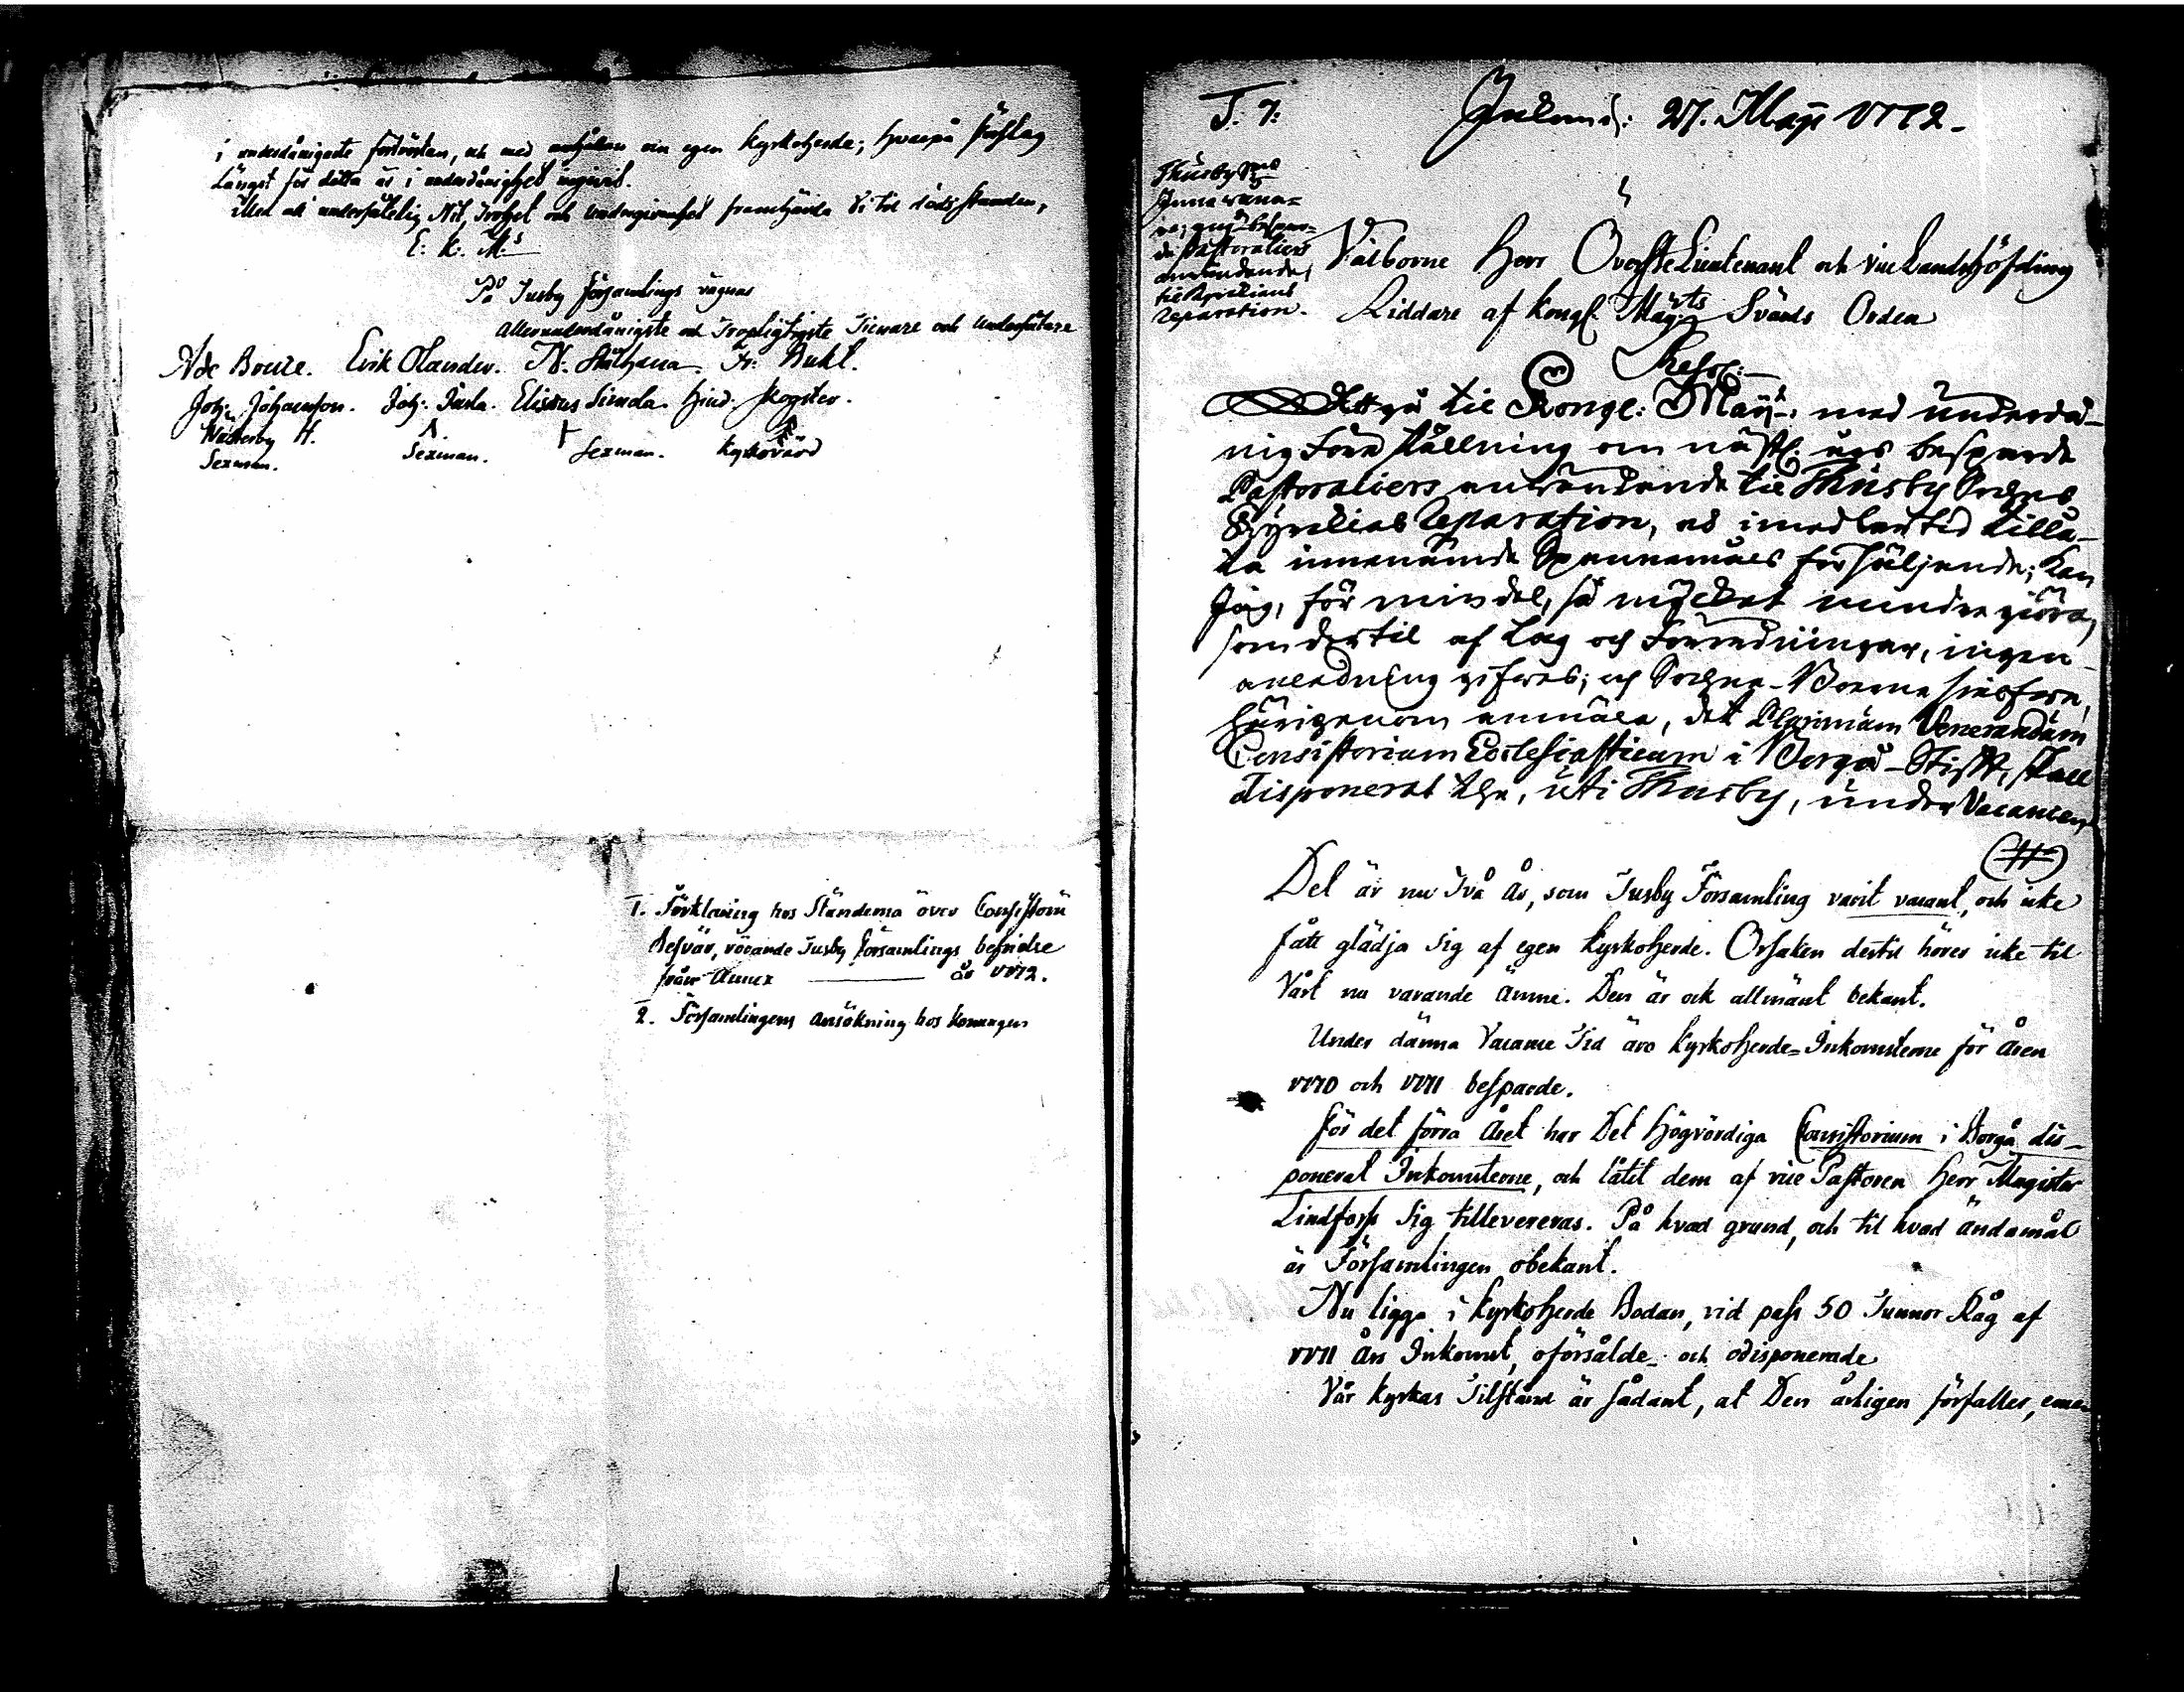 i underdånigaste förtröstan, och med anhålan om egen Kyrkoherde; hvarpå förslag
Längst för detta är i underdånighet ingivit.
Med all undersåtelig Nit, Trohet och undergivenhet framhärda Vi til dödsstunden,
E: K: M:s
På Tusby församlings vägnar
Allerunderdånigste och Tropligtigste Tienare och Undersåtare
Erik Olander. N. Stålhana. Fr: Bukl.
Joh: Johansson. Joh: Elisæus Simola. Hind:
Sexman. Sexman. Sexman. Kyrkovärd
1. Förklaring hos Ständerna över Consistorii
Besvär, rörande Tusby församlings befrielse
från Annex ——— år 1772.
2. Församlingens Ansökning hos Konungen
T. 7: 27. Maji 1772.
Thusby
Pastoraliers
användande,
til Kyrckians
reparation.
Välborne Herr ÖversteLieutenant och vice Landshöfding
Riddare af Kongl. Maij:ts Svärds Orden
Resol:
Att gå til Kongl: Maij:t med underdå-
nigFöreställning om näst. års besparde
Pastoraliers användande til Thusby Sochns
Kyrckias reparation, at imedlertid tillå-
ta innenämde Spannemåls försäljande; kan
Jag, för min del, så mycket mindre giöra,
som dertil af Lag och Förordningar, ingen
anledning gifves; och Sochne-Boerne
härigenom anmäla, det Maximum Venerandum
Consistorium Ecclesiasticum i Borgå-Stift, skall
disponerat uti Thusby, under Vacancen
(#)
Det är nu Två År, som Tusby Församling varit vacant, och icke
fått glädja sig af egen Kyrkoherde. Orsaken dertil hörer icke til
Vårt nu varande ämne. Den är ock allmänt bekant.
Under dänna Vacance Tid äro Kyrkoherde-Inkomsterne för Åren
1770 och 1771 besparde.
För det förra Året har Det Högvördiga Consistorium i Borgå dis-
ponerat Inkomsterne, och låtit dem af vice Pastoren Herr Magister
Lindforss Sig tillevereras. På hvad grund, och til hvad ändamål
är Församlingen obekant.
Nu ligga i Kyrkoherde Bodan, vid pass 50 Tunnor Råg af
1771 Års Inkomst, oförsålde och odisponerade
Vår Kyrkas Tilstånd är sådant, at Den årligen förfaller, eme